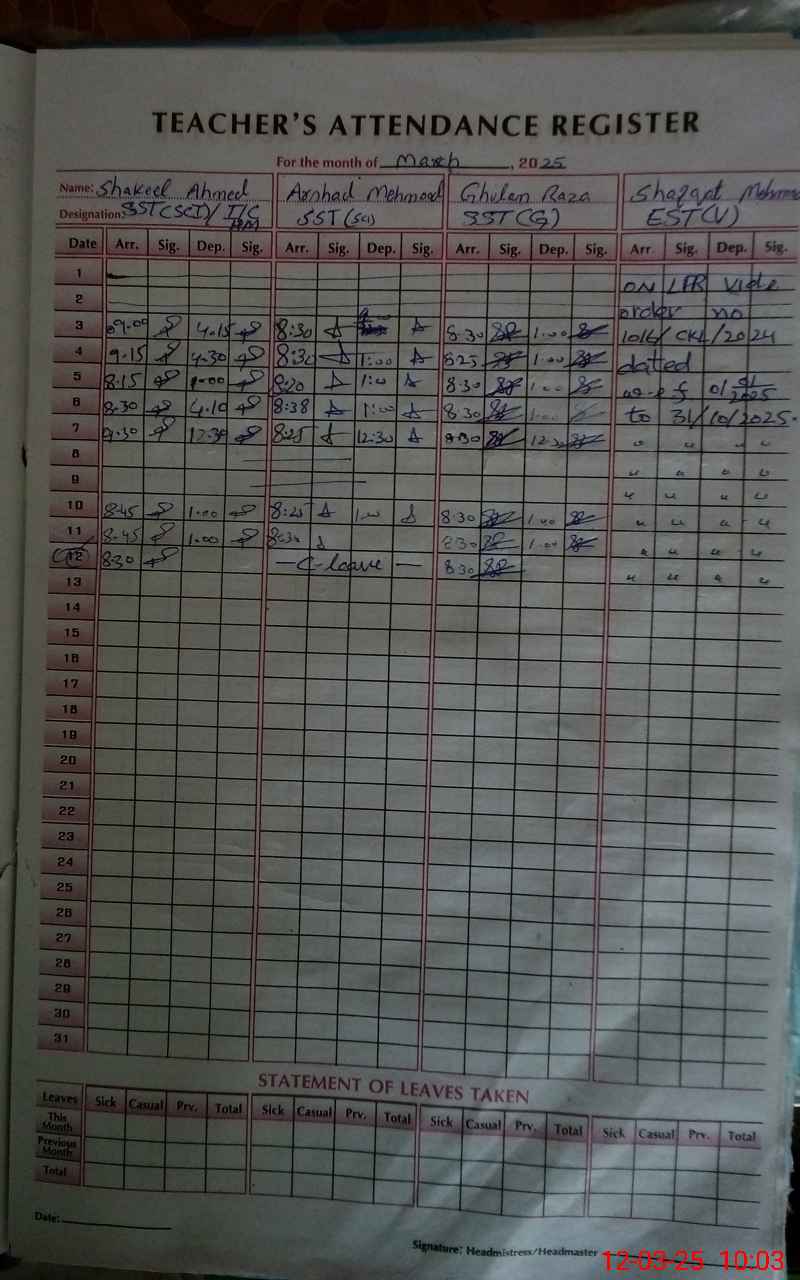 TEACHER'S ATTENDANCE REGISTER
For the month of March, 2025
Name: Shakeel Ahmed Arshad Mehmood Ghulam Raza Shafqat
Designation: SST(SCI)/I/C HM SST(sci) SST(G) EST(V)
Date Arr. Sig. Dep. Sig. Arr. Sig. Dep. Sig. Arr. Sig. Dep. Sig. Arr. Sig. Dep. Sig.
1 ON LPR vide
2 order no
3 09.00 4.15 8:30 8.30 1.00 1016/ /2024
4 9.15 4.30 8:30 1:00 825 1.00 dated
5 8:15 8:20 1:00 8.30 1.00 w.e.f 01/01/2025
6 8.30 4.10 8:38 1:00 8.30 1.00 to 31/10/2025.
7 12.30 8:25 12:30 8.30 12.30 " " " "
8 " " " "
9 " " " "
10 8.45 1.00 8:25 1.00 8.30 1.00 " " " "
11 8.45 1.00 8:30 8.30 1.00 " " " "
12 8.30 — C-leave — 8.30 " " " "
13
14
15
16
17
18
19
20
21
22
23
24
25
26
27
28
29
30
31
STATEMENT OF LEAVES TAKEN
Leaves Sick Casual Prv. Total Sick Casual Prv. Total Sick Casual Prv. Total Sick Casual Prv. Total
This Month
Previous Month
Total
Date:
Signature: Headmistress/Headmaster
12-03-25 10:03